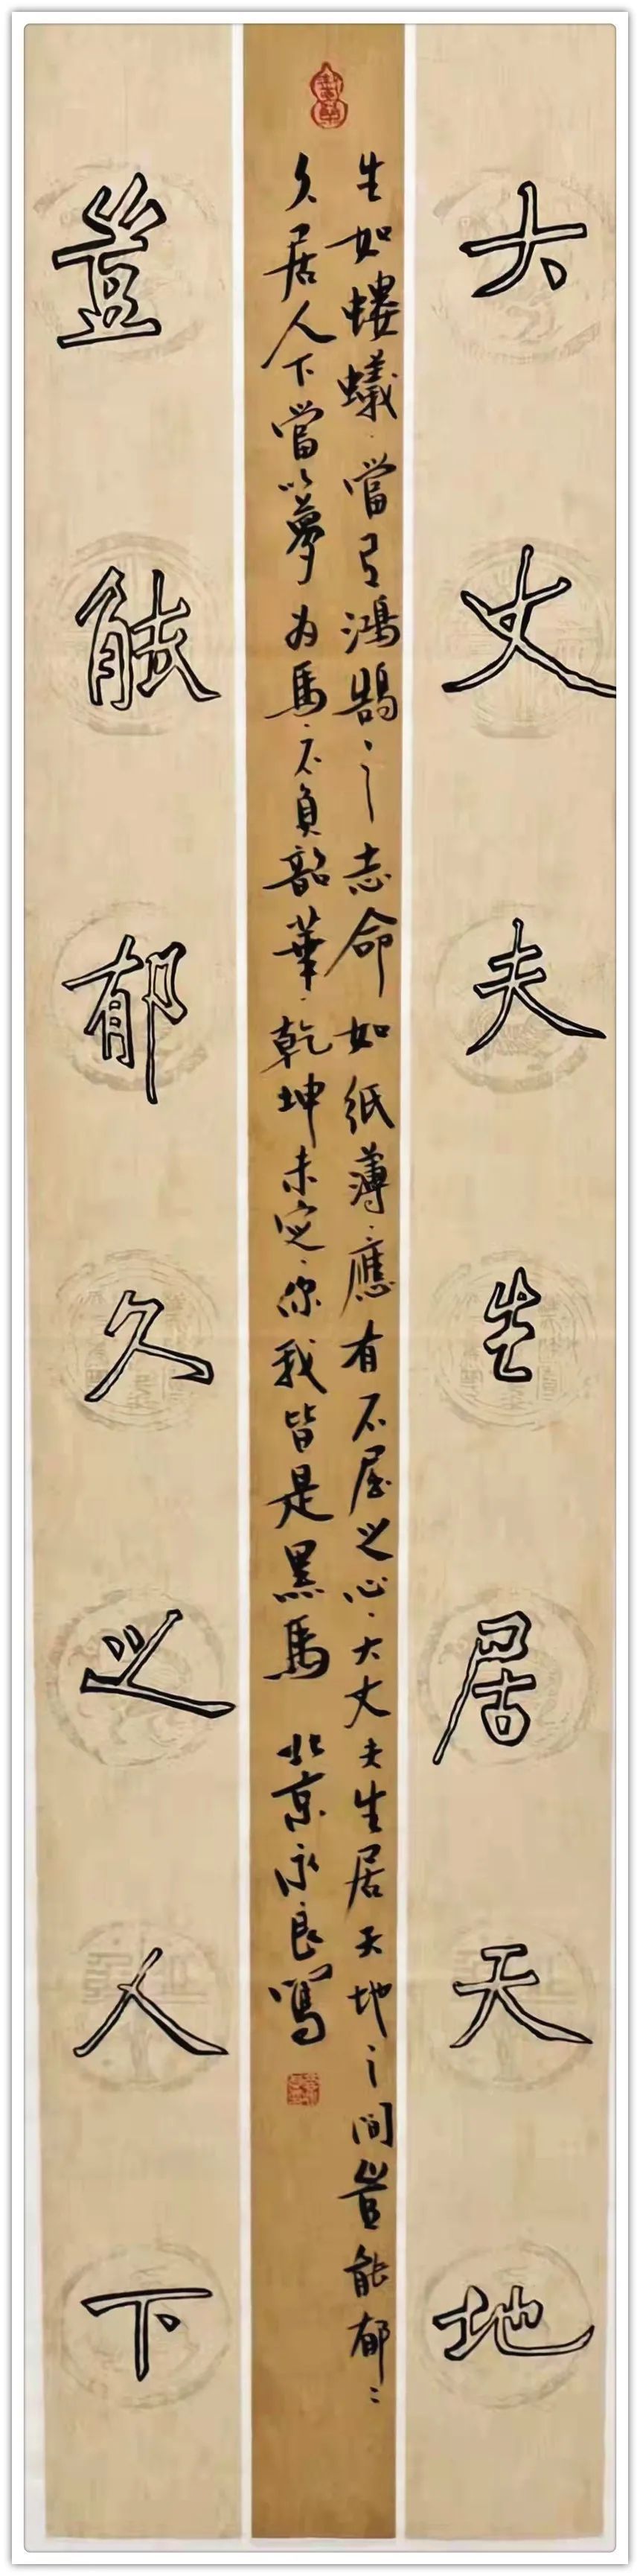 大丈夫生居天地
生如螻蟻當有鴻鵠之志命如紙薄應有不屈之心大丈夫生居天地之間豈能郁〻
久居人下當以夢為馬不負韶華乾坤未定你我皆是黑馬 北京永良寫
豈能郁久之人下